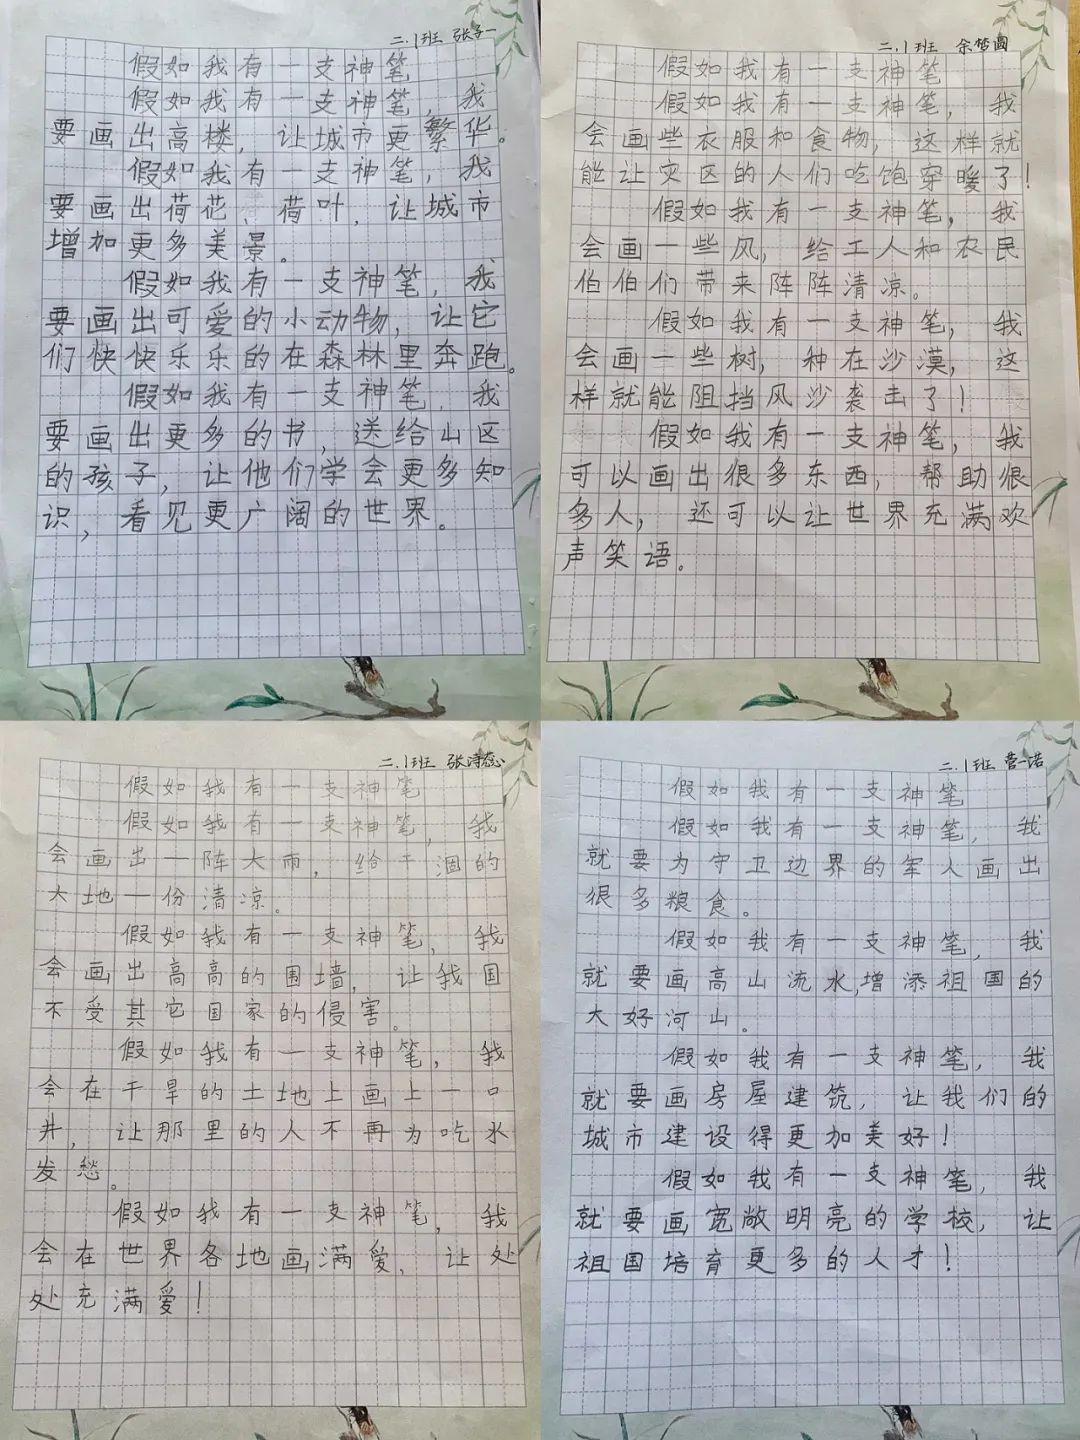 二.1班 张子一
假如我有一支神笔
假如我有一支神笔，我
要画出高楼，让城市更繁华。
假如我有一支神笔，我
要画出荷花、荷叶，让城市
增加更多美景。
假如我有一支神笔，我
要画出可爱的小动物，让它
们快快乐乐的在森林里奔跑。
假如我有一支神笔，我
要画出更多的书，送给山区
的孩子，让他们学会更多知
识，看见更广阔的世界。
二.1班 余梦圆
假如我有一支神笔
假如我有一支神笔，我
会画些衣服和食物，这样就
能让灾区的人们吃饱穿暖了！
假如我有一支神笔，我
会画一些风，给工人和农民
伯伯们带来阵阵清凉。
假如我有一支神笔，我
会画一些树，种在沙漠，这
样就能阻挡风沙袭击了！
假如我有一支神笔，我
可以画出很多东西，帮助很
多人，还可以让世界充满欢
声笑语。
二.1班 张诗蕊
假如我有一支神笔
假如我有一支神笔，我
会画出一阵大雨，给干涸的
大地一份清凉。
假如我有一支神笔，我
会画出高高的围墙，让我国
不受其它国家的侵害。
假如我有一支神笔，我
会在干旱的土地上画上一口
井，让那里的人不再为吃水
发愁。
假如我有一支神笔，我
会在世界各地画满爱，让处
处充满爱！
二.1班 营一诺
假如我有一支神笔
假如我有一支神笔，我
就要为守卫边界的军人画出
很多粮食。
假如我有一支神笔，我
就要画高山流水,增添祖国的
大好河山。
假如我有一支神笔，我
就要画房屋建筑，让我们的
城市建设得更加美好！
假如我有一支神笔，我
就要画宽敞明亮的学校，让
祖国培育更多的人才！